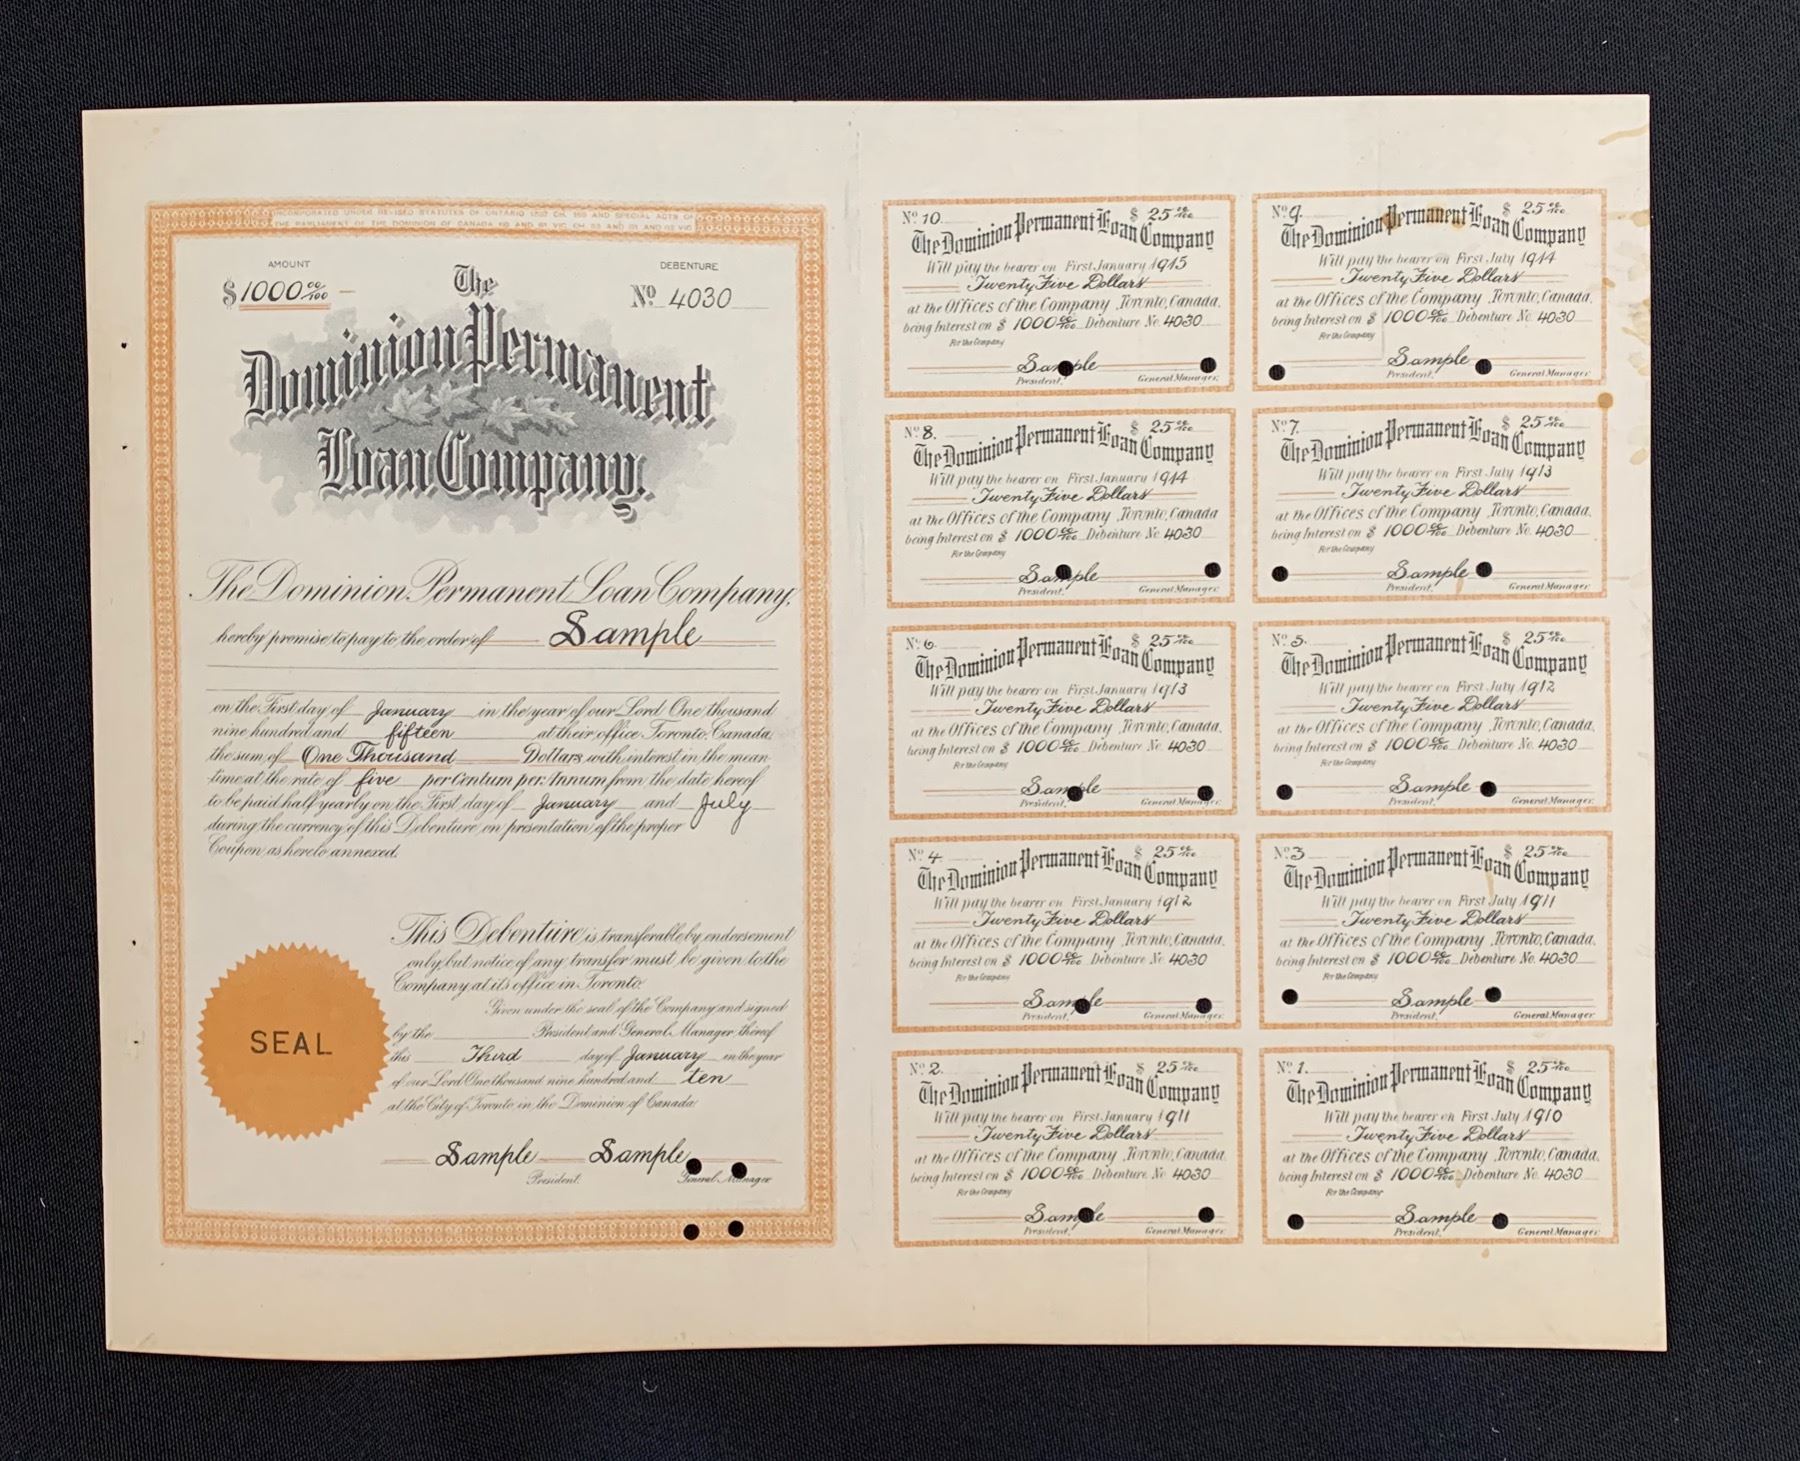 INCORPORATED UNDER REVISED STATUTES OF ONTARIO CH. 169 AND SPECIAL ACTS OF
THE PARLIAMENT OF THE DOMINION OF CANADA AND 61 VIC. CH. AND 61 AND 62 VIC
AMOUNT
$1000 00/100
DEBENTURE
No 4030
The
Dominion Permanent
Loan Company.
The Dominion Permanent Loan Company,
hereby promise to pay to the order of Sample
on the First day of January in the year of our Lord One thousand
nine hundred and fifteen at their office Toronto, Canada,
the sum of One Thousand Dollars with interest in the mean
time at the rate of five per Centum per Annum from the date hereof
to be paid half yearly on the First day of January and July
during the currency of this Debenture, on presentation of the proper
Coupon, as hereto annexed.
This Debenture is transferable by endorsement
only, but notice of any transfer must be given to the
Company at its office in Toronto.
Given under the seal of the Company and signed
by the President and General Manager thereof
this Third day of January in the year
of our Lord One thousand nine hundred and ten
at the City of Toronto in the Dominion of Canada
SEAL
Sample Sample
President. General Manager
No 10. $ 25 00/100
The Dominion Permanent Loan Company
Will pay the bearer on First January 1915
Twenty Five Dollars
at the Offices of the Company, Toronto, Canada.
being Interest on $ 1000 00/100 Debenture No. 4030
For the Company
Sample
President. General Manager.
No 9. $ 25 00/100
The Dominion Permanent Loan Company
Will pay the bearer on First July 1914
Twenty Five Dollars
at the Offices of the Company, Toronto, Canada.
being Interest on $ 1000 00/100 Debenture No. 4030
For the Company
Sample
President. General Manager.
No 8. $ 25 00/100
The Dominion Permanent Loan Company
Will pay the bearer on First January 1914
Twenty Five Dollars
at the Offices of the Company, Toronto, Canada
being Interest on $ 1000 00/100 Debenture No. 4030
For the Company
Sample
President. General Manager.
No 7. $ 25 00/100
The Dominion Permanent Loan Company
Will pay the bearer on First July 1913
Twenty Five Dollars
at the Offices of the Company, Toronto, Canada.
being Interest on $ 1000 00/100 Debenture No. 4030
For the Company
Sample
President. General Manager.
No 6. $ 25 00/100
The Dominion Permanent Loan Company
Will pay the bearer on First January 1913
Twenty Five Dollars
at the Offices of the Company, Toronto, Canada.
being Interest on $ 1000 00/100 Debenture No. 4030
For the Company
Sample
President. General Manager.
No 5. $ 25 00/100
The Dominion Permanent Loan Company
Will pay the bearer on First July 1912
Twenty Five Dollars
at the Offices of the Company, Toronto, Canada.
being Interest on $ 1000 00/100 Debenture No. 4030
For the Company
Sample
President. General Manager.
No 4 $ 25 00/100
The Dominion Permanent Loan Company
Will pay the bearer on First January 1912
Twenty Five Dollars
at the Offices of the Company, Toronto, Canada.
being Interest on $ 1000 00/100 Debenture No. 4030
For the Company
Sample
President. General Manager.
No 3 $ 25 00/100
The Dominion Permanent Loan Company
Will pay the bearer on First July 1911
Twenty Five Dollars
at the Offices of the Company, Toronto, Canada.
being Interest on $ 1000 00/100 Debenture No. 4030
For the Company
Sample
President. General Manager.
No 2. $ 25 00/100
The Dominion Permanent Loan Company
Will pay the bearer on First January 1911
Twenty Five Dollars
at the Offices of the Company, Toronto, Canada.
being Interest on $ 1000 00/100 Debenture No. 4030
For the Company
Sample
President. General Manager.
No 1. $ 25 00/100
The Dominion Permanent Loan Company
Will pay the bearer on First July 1910
Twenty Five Dollars
at the Offices of the Company, Toronto, Canada.
being Interest on $ 1000 00/100 Debenture No. 4030
For the Company
Sample
President. General Manager.